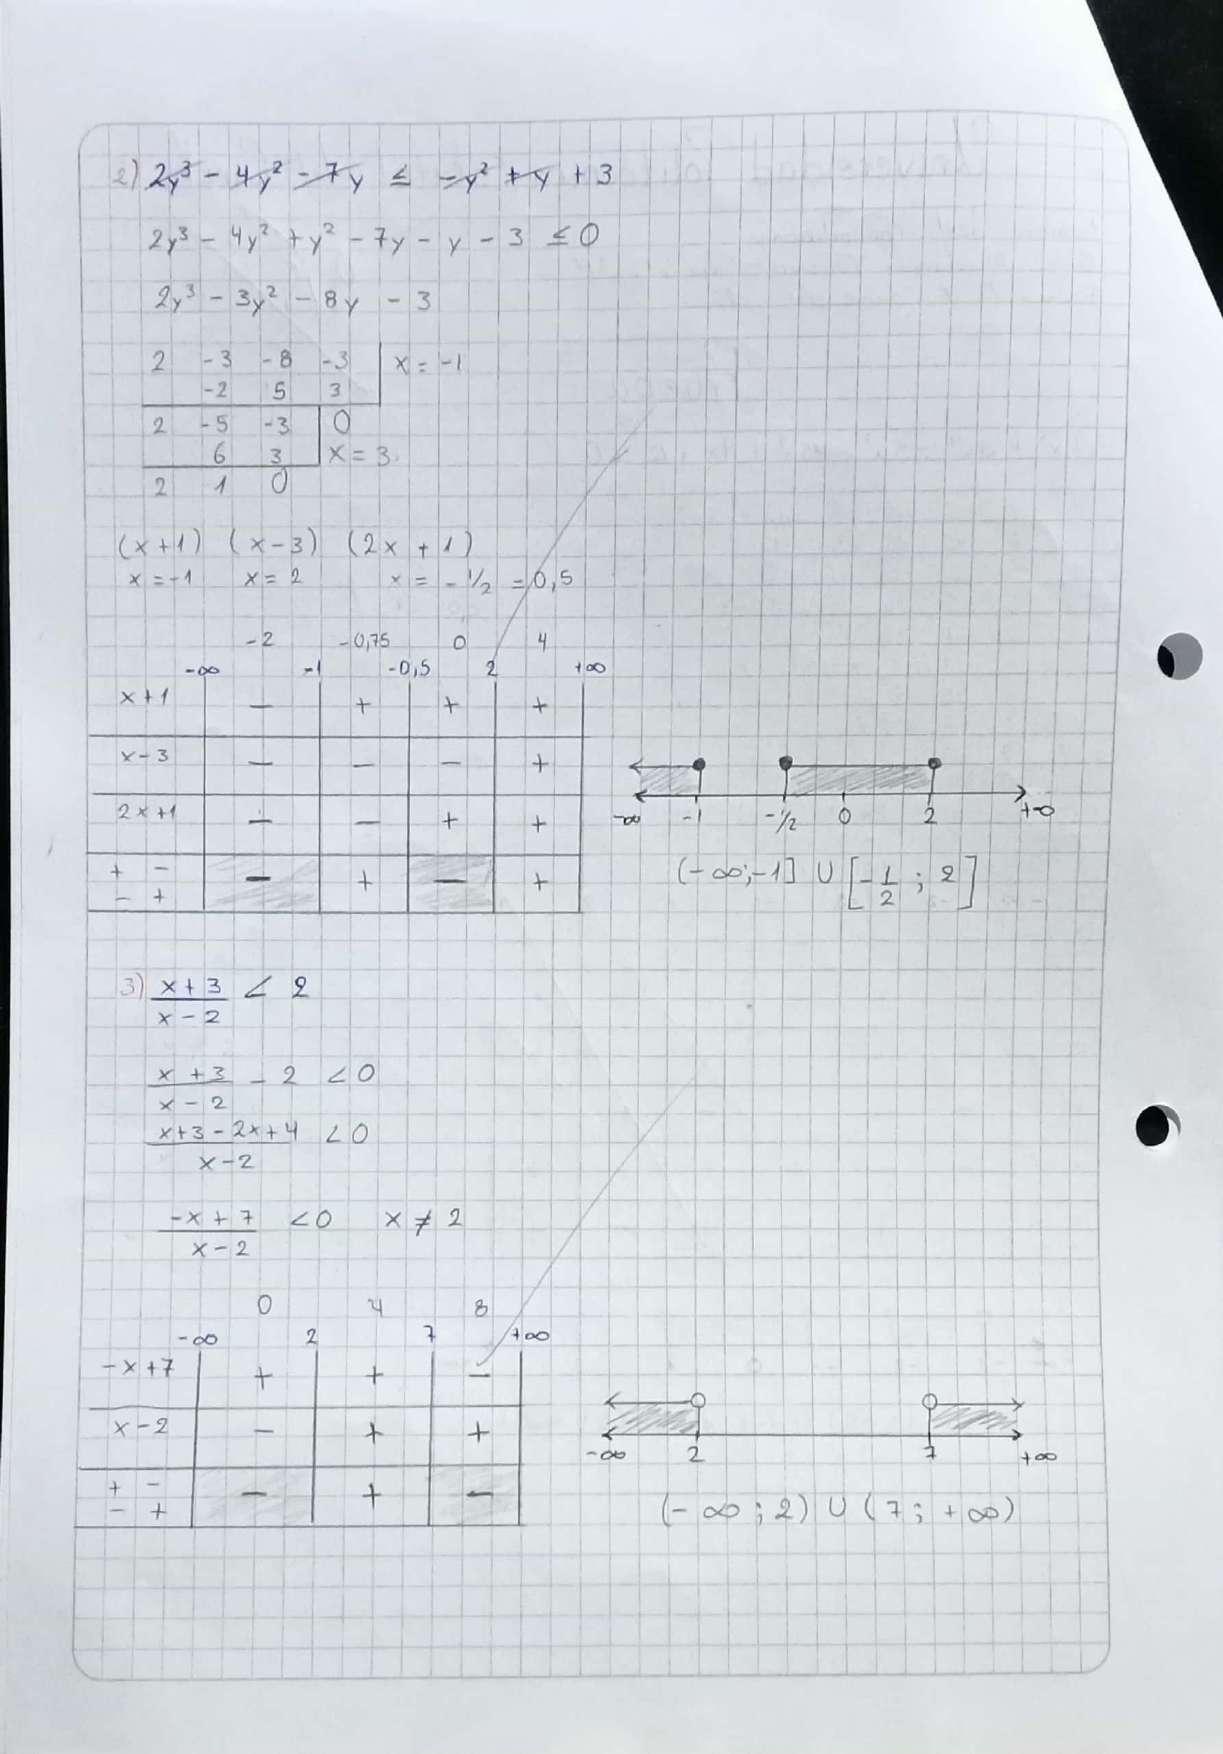 2) 2y³ - 4y² - 7y ≤ -y² + y + 3
2y³ - 4y² + y² - 7y - y - 3 ≤ 0
2y³ - 3y² - 8y - 3
2 -3 -8 -3 x = -1
-2 5 3
2 -5 -3 0
6 3 x = 3
2 1 0
(x+1) (x-3) (2x + 1)
x = -1 x = 2 x = -1/2 = 0,5
-2 -0,75 0 4
-∞ -1 -0,5 2 +∞
x+1 - + + +
x-3 - - - +
2x+1 - - + +
+ - - + - +
- +
-∞ -1 -1/2 0 2 +∞
(-∞;-1] ∪ [-1/2 ; 2]
3) x+3 < 2
x-2
x+3 - 2 < 0
x-2
x+3-2x+4 < 0
x-2
-x+7 < 0 x ≠ 2
x-2
0 4 8
-∞ 2 7 +∞
-x+7 + + -
x-2 - + +
+ - - + -
- +
-∞ 2 7 +∞
(-∞;2) ∪ (7;+∞)